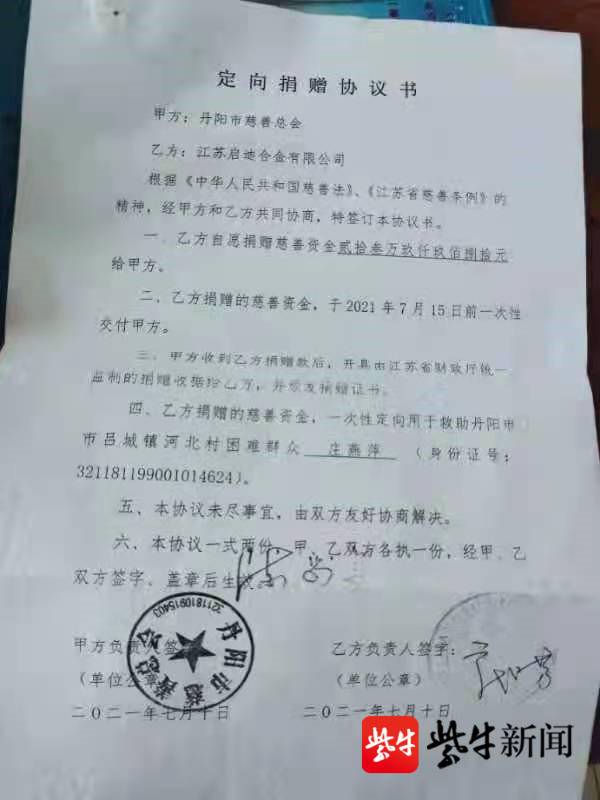 定向捐赠协议书
甲方：丹阳市慈善总会
乙方：江苏启迪合金有限公司
根据《中华人民共和国慈善法》、《江苏省慈善条例》的
精神，经甲方和乙方共同协商，特签订本协议书。
一、乙方自愿捐赠慈善资金贰拾叁万玖仟玖佰捌拾元
给甲方。
二、乙方捐赠的慈善资金，于2021年7月15日前一次性
交付甲方。
三、甲方收到乙方捐赠款后，开具由江苏省财政厅统一
监制的捐赠收据给乙方，并颁发捐赠证书。
四、乙方捐赠的慈善资金，一次性定向用于救助丹阳市
市吕城镇河北村困难群众 庄燕萍 （身份证号：
321181199001014624）。
五、本协议未尽事宜，由双方友好协商解决。
六、本协议一式两份，甲、乙双方各执一份，经甲、乙
双方签字、盖章后生效。
甲方负责人签
乙方负责人签字：
（单位公章）
（单位公章）
二〇二一年七月十日
二〇二一年七月十日
丹阳市慈善总会
3211810915403
紫牛 紫牛新闻